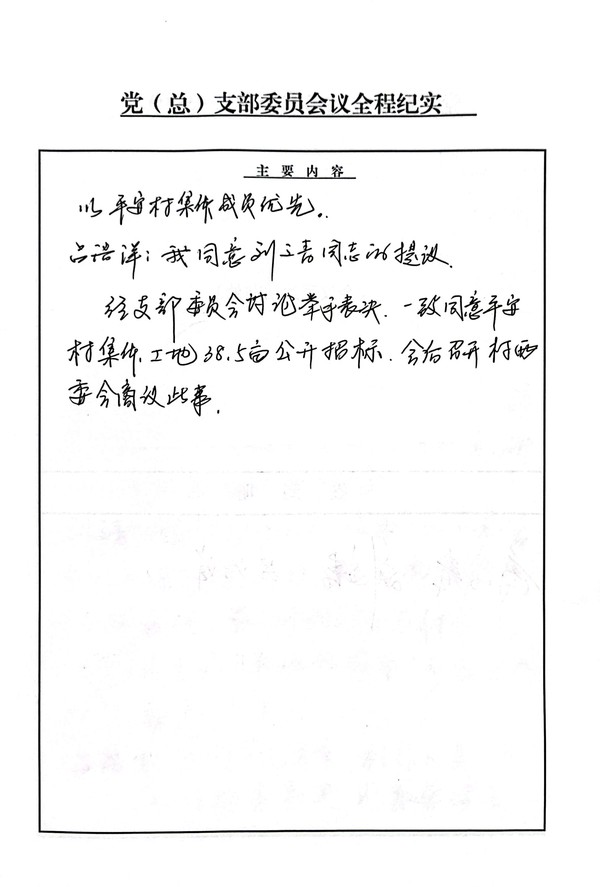 党（总）支部委员会议全程纪实
主要内容
以平安村集体成员优先。
吕浩洋：我同意刘立青同志的提议.
经支部委员会讨论举手表决.一致同意平安
村集体.工地38.5亩公开招标.会后召开村两
委会商议此事.